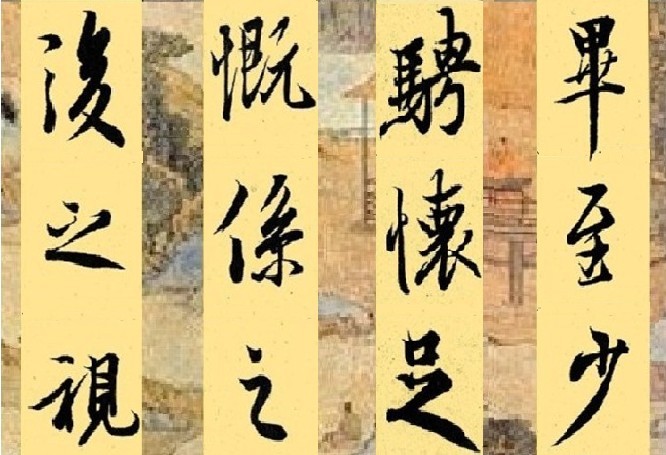 畢至少
騁懷足
慨係之
後之視